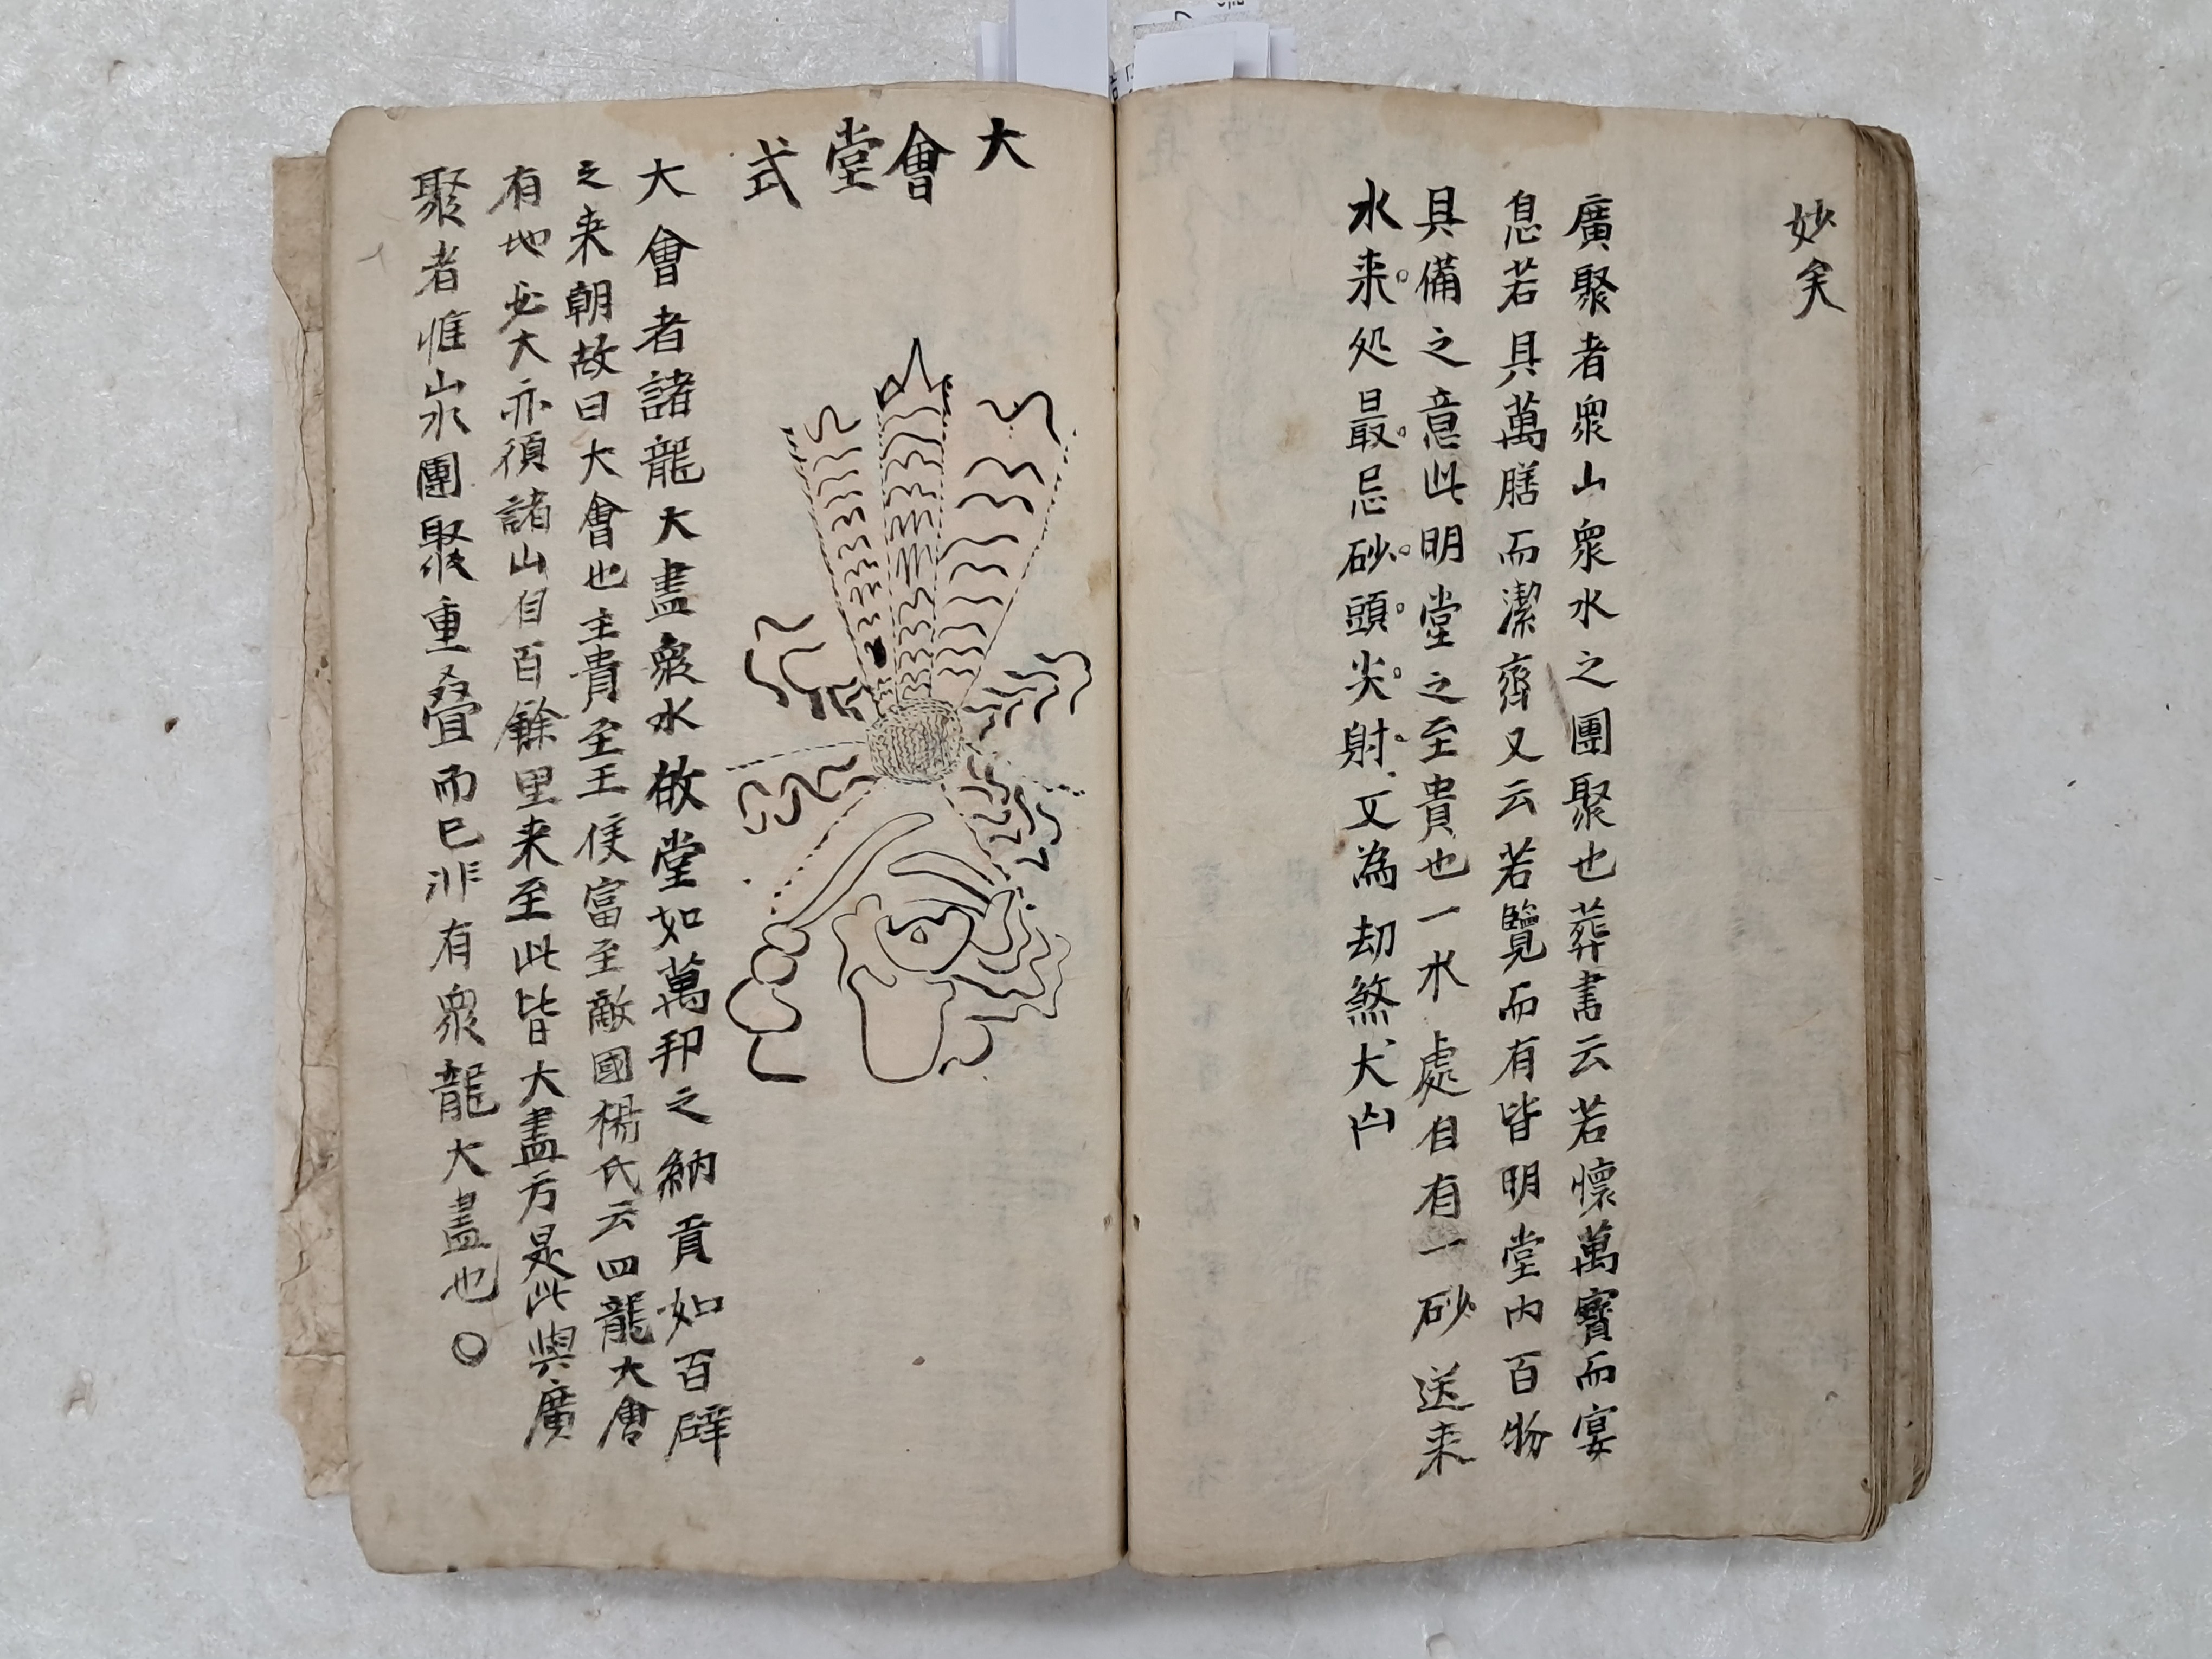 妙矣
廣聚者衆山衆水之團聚也葬書云若懷萬寶而宴
息若具萬膳而潔齊又云若覽而有皆明堂内百物
具備之意此明堂之至貴也一水處自有一砂送来
水来処最忌砂頭尖射又為劫煞大凶
大會堂式
大會者諸龍大盡衆水啟堂如萬邦之納貢如百辟
之来朝故曰大會也主貴至王侯富至敵國楊氏云四龍大會
有地必大亦須諸山自百餘里来至此皆大盡方是此與廣
聚者惟山水團聚重叠而已非有衆龍大盡也〇